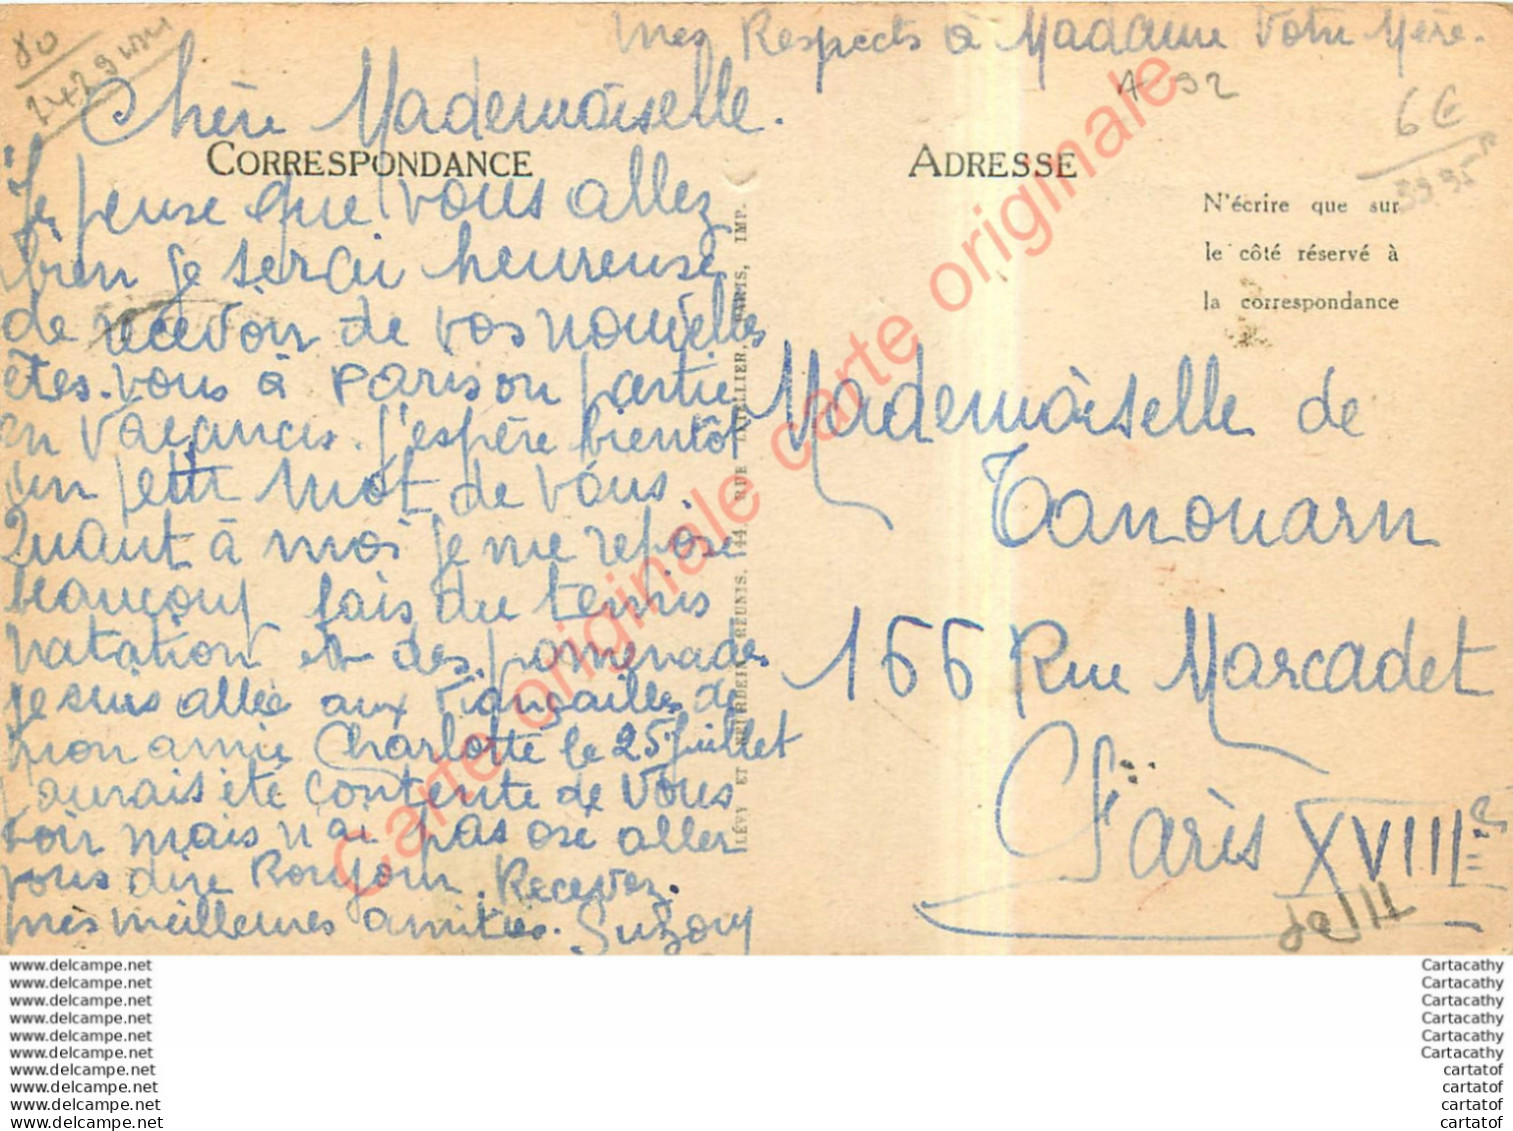 Mes Respects à Madame Votre Mère.
80
Chère Mademoiselle.
A 92
6€
3995
CORRESPONDANCE
ADRESSE
N'écrire que sur
le côté réservé à
la correspondance
Je pense que vous allez
bien je serai heureuse
de recevoir de vos nouvelles
êtes-vous à Paris ou partie
en vacances. J'espère bientôt
un petit mot de vous.
Quant à moi je me repose
beaucoup fais du tennis
natation et des promenades
je suis allée aux fiançailles de
mon amie Charlotte le 25 Juillet
J'aurais été contente de vous
voir mais n'ai pas osé aller
vous dire Bonjour. Recevez.
mes meilleures amitiés. Suzony
LÉVY ET NEURDEIN RÉUNIS, 44, RUE LETELLIER, PARIS, IMP.
Mademoiselle de
Tanouarn
166 Rue Marcadet
Paris XVIIIe
Carte originale carte originale
www.delcampe.net
www.delcampe.net
www.delcampe.net
www.delcampe.net
www.delcampe.net
www.delcampe.net
www.delcampe.net
www.delcampe.net
www.delcampe.net
www.delcampe.net
Cartacathy
Cartacathy
Cartacathy
Cartacathy
Cartacathy
Cartacathy
cartatof
cartatof
cartatof
cartatof